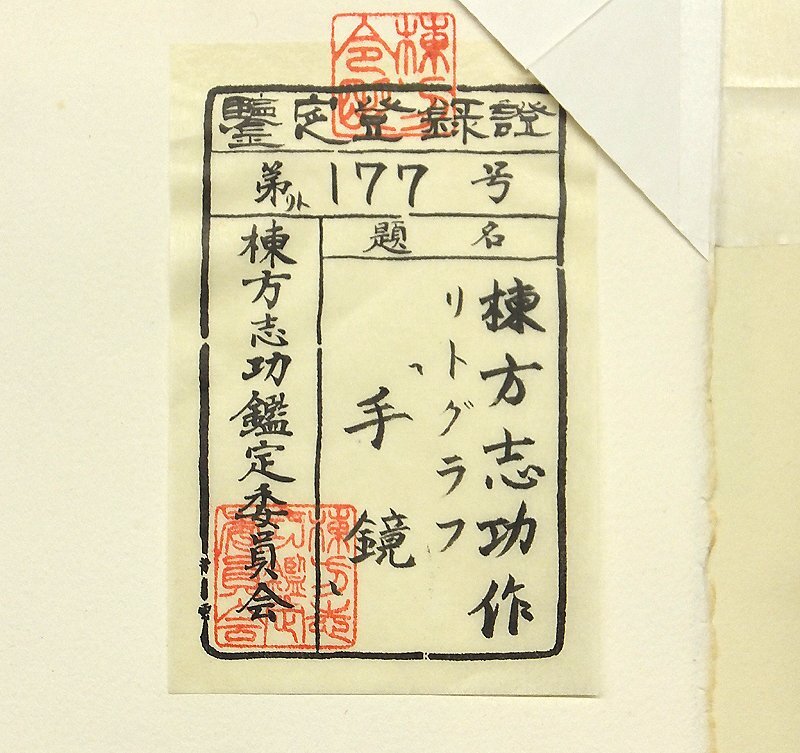 鑒定登錄證
第リト177号
題名
棟方志功作
リトグラフ
手鏡
棟方志功鑑定委員会
棟方志功鑑定委員会